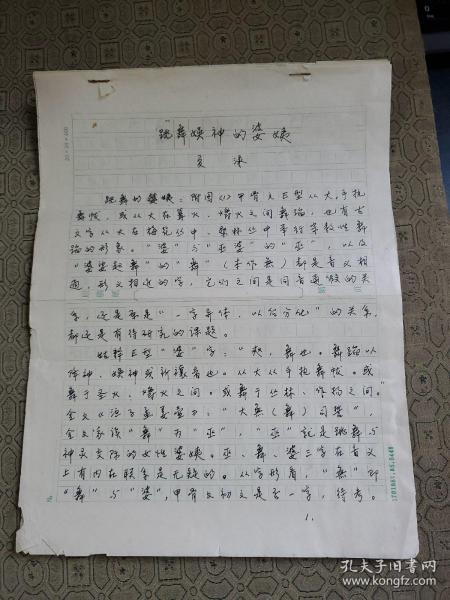 跳舞娱神的婆娑
夏渌
跳舞的婆娑:附图(1)甲骨文E型从大,手执
舞帔,或从大在篝火、爝火之间舞蹈,也有古
文字从大在梅花丛中、丛林丛中举行宗教性舞
蹈的形象。"婆"与"巫婆"的"巫",以及
"婆娑起舞"的"舞"(本作無)都是音义相
通,形义相近的字,它们之间是同音通假的关
系,还是原是"一字异体,以后分化"的关系,
都还是有待研究的课题。
释E型"婆"字:"婆,舞也。舞蹈以
降神、娱神或祈禳者也。从大从手执舞帔。或
舞于圣火、爝火之间。或舞于丛林、作物之间。"
金文《 》:"大無(舞)司 ",
金文家读"舞"为"巫","巫"就是跳舞与
神灵交际的女性婆娑。巫、舞、婆三字在音义
上有内在联系是无疑的。从字形看,"無"即
"舞"与"婆",甲骨文初文是否一字,待考。
1.
孔夫子旧书网
www.kongfz.com